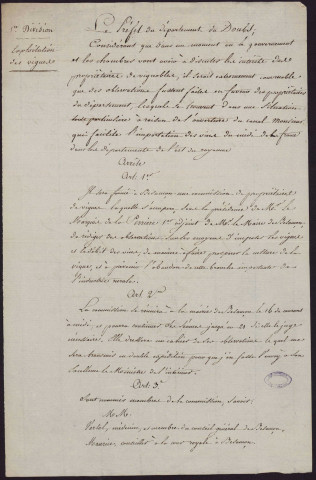 1re Division
Exploitation
des vignes
Le Préfet du département du Doubs,
Considérant que dans un moment où le gouvernement
et les chambres vont avoir à discuter les intérêts des
propriétaires de vignobles, il serait extrêmement convenable
que des observations fussent faites en faveur des propriétaires
du département, lesquels se trouvent dans une situation
particulière à raison de l'ouverture du canal Monsieur
qui facilite l'importation des vins du midi de la france
dans les départements de l'Est du royaume
Arrête
Art. 1er
Il sera formé à Besançon une commission de propriétaires
de vignes laquelle s'occupera, sous la présidence de Mr. le
Marquis de la 1er adjoint de Mr. le Maire de Besançon,
de rédiger des observations sur les moyens d'imposer les vignes
et le débit des vins, de manière à faire prospérer la culture de la
vigne, et à prévenir l'abandon de cette branche importante de
l'industrie rurale.
Art 2e
La commission se réunira à la mairie de Besançon le 16 du courant
à midi, et pourra continuer ses séances jusqu'au 21 si elle le juge
nécessaire. Elle dressera un cahier de ses observations lequel me
sera transmis en double expédition pour que j'en fasse l'envoi à Son
Excellence le Ministre de l'intérieur.
Art 3e
Sont nommés membres de la commission, savoir:
M.M.
médecin, et membre du conseil général à Besançon
conseiller à la cour royale à Besançon